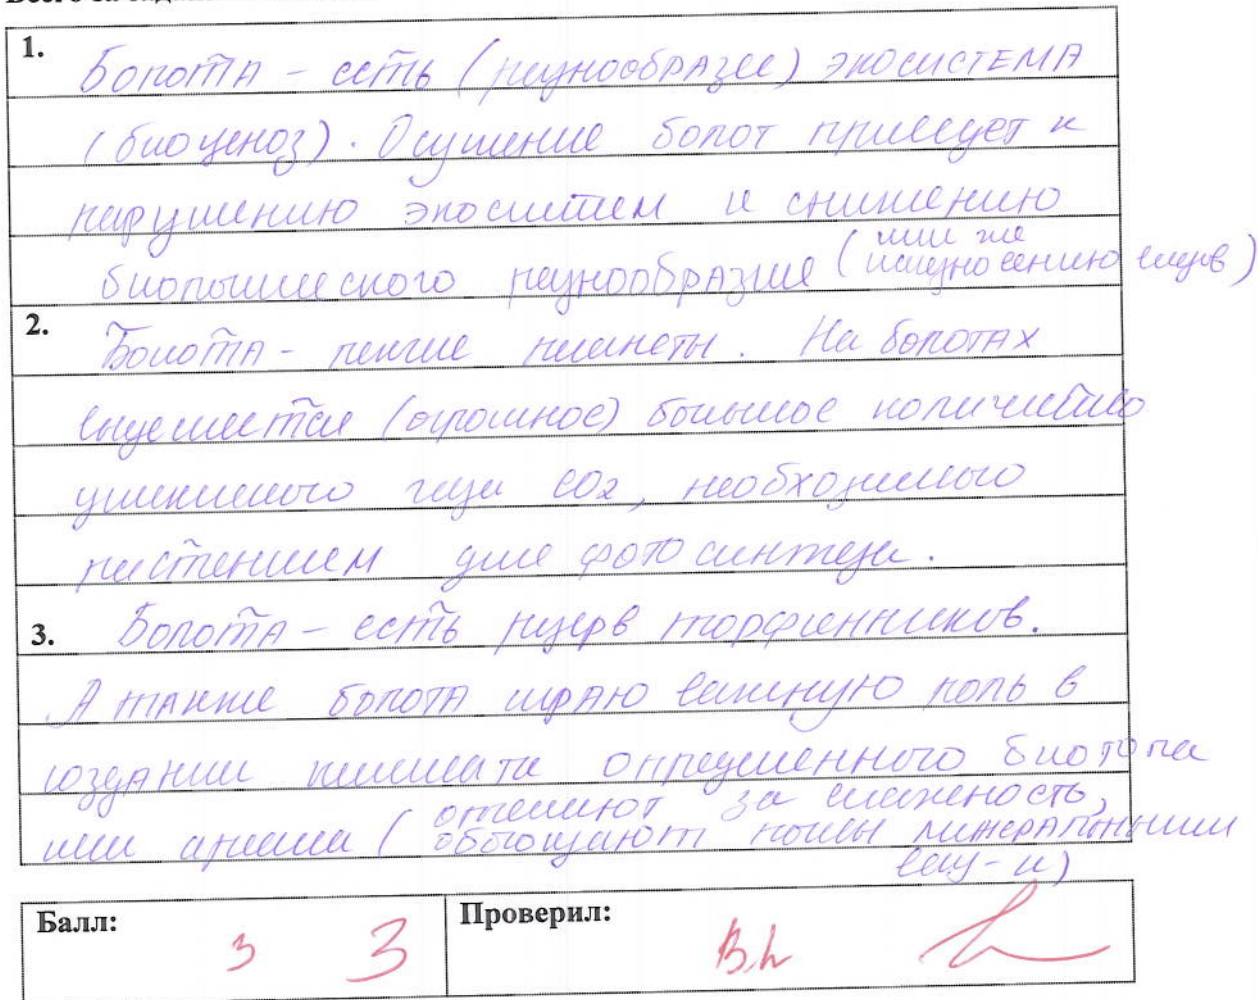 1. Болота - есть (разнообразее) экосистема
(биоценоз). Осушение болот приведет к
нарушению экосистем и снижению
биологического разнообразия (или же исчезновению видов)
2. Болота - легкие планеты. На болотах
выделяется (огромное) большое количество
углекислого газа CO2, необходимого
растениям для фотосинтеза.
3. Болота - есть резерв торфяников.
А также болота играю важную роль в
создании климата определенного биотопа
или ареала (отвечают за влажность,
обогощают почвы минеральными
вещ-и)
Балл: 3 3 Проверил: